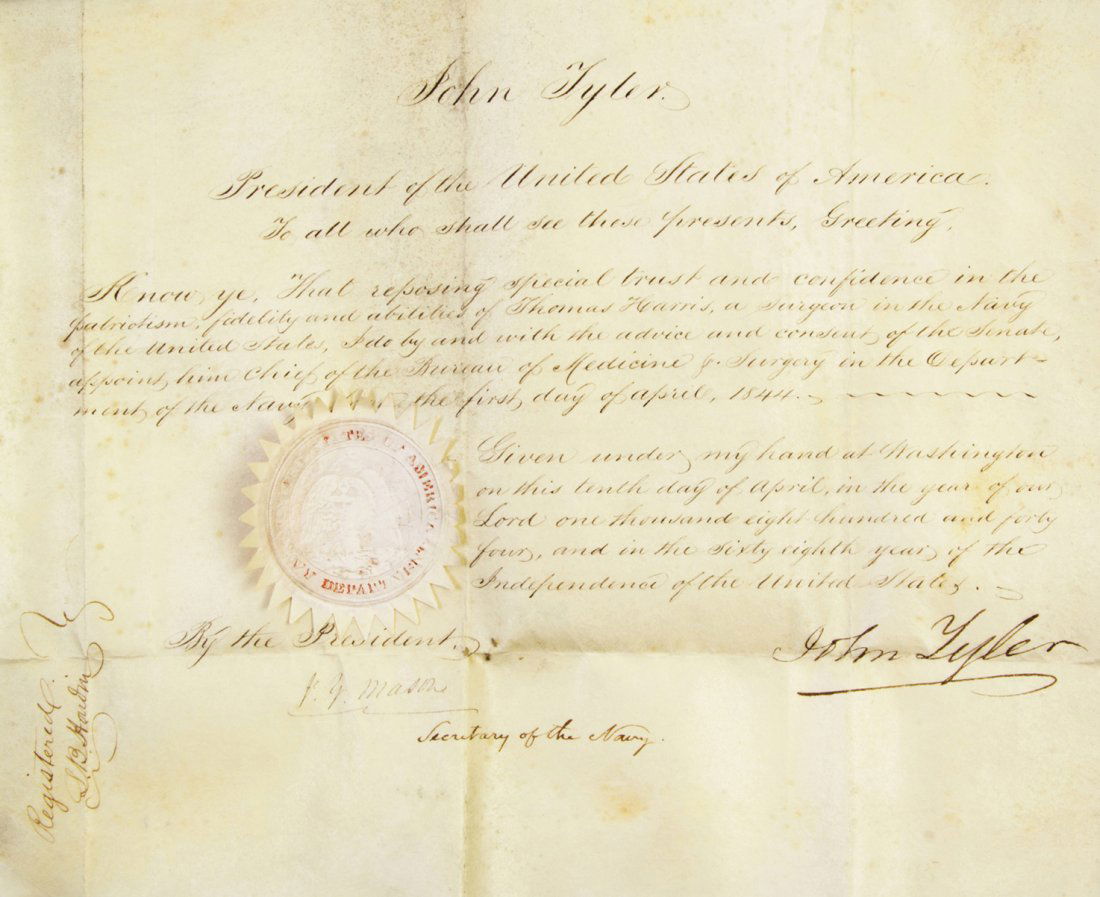 John Tyler.
President of the United States of America.
To all who shall see these presents, Greeting,
Know ye, That reposing special trust and confidence in the
patriotism, fidelity and abilities of Thomas Harris, a Surgeon in the Navy
of the United States, I do by and with the advice and consent of the Senate,
appoint him Chief of the Bureau of Medicine & Surgery in the Depart-
ment of the Navy the first day of april, 1844.
Given under my hand at Washington
on this tenth day of april, in the year of our
Lord one thousand eight hundred and forty
four, and in the Sixty eighth year of the
Independence of the United States.
By the President,
John Tyler
J. Y. Mason
Secretary of the Navy.
Registered.
S. B. Hardin
STATES OF AMERICA
NAVY DEPARTMENT